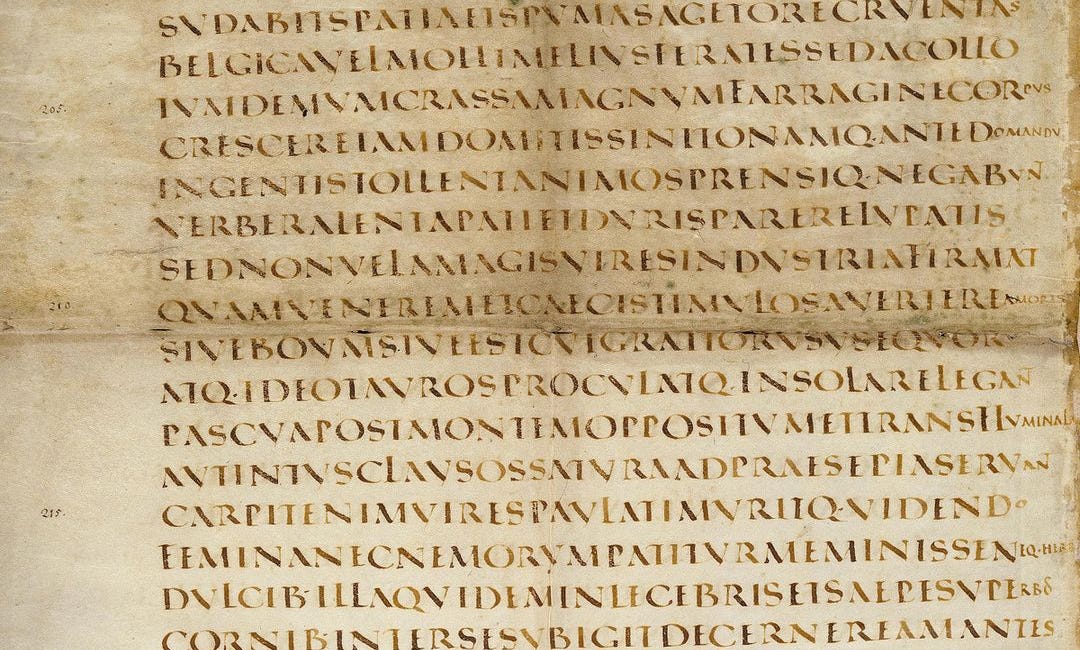 SVDABITSPATIAETSPVMASAGETORECRVENTAS
BELGICAVELMOLLIMELIVSFERATESSEDACOLLO
205. TVMDEMVMCRASSAMAGNVMFARRAGINECORPVS
CRESCEREIAMDOMITISSINITONAMQ·ANTEDOMANDV
INGENTISTOLLENTANIMOSPRENSIQ·NEGABVNT
VERBERALENTAPATIETDVRISPARERELVPATIS
SEDNONVLLAMAGISVIRESINDVSTRIAFIRMAT
210 QVAMVENEREMETCAECISTIMVLOSAVERTEREAMORIS
SIVEBOVMSIVEESTCVIGRATIORVSVSEQVOR
ATQ·IDEOTAVROSPROCVLATQ·INSOLARELEGANT
PASCVAPOSTMONTEMOPPOSITVMETTRANSFLVMINALA
AVTINTVSCLAVSOSSATVRAADPRAESEPIASERVANT
215. CARPITENIMVIRESPAVLATIMVRITQ·VIDENDO
FEMINANECNEMORVMPATITVRMEMINISSENEQ·HERB
DVLCIB·ILLAQVIDEMINLECEBRISETSAEPESVPERBŌ
CORNIB·INTERSESVBIGITDECERNEREAMANTES